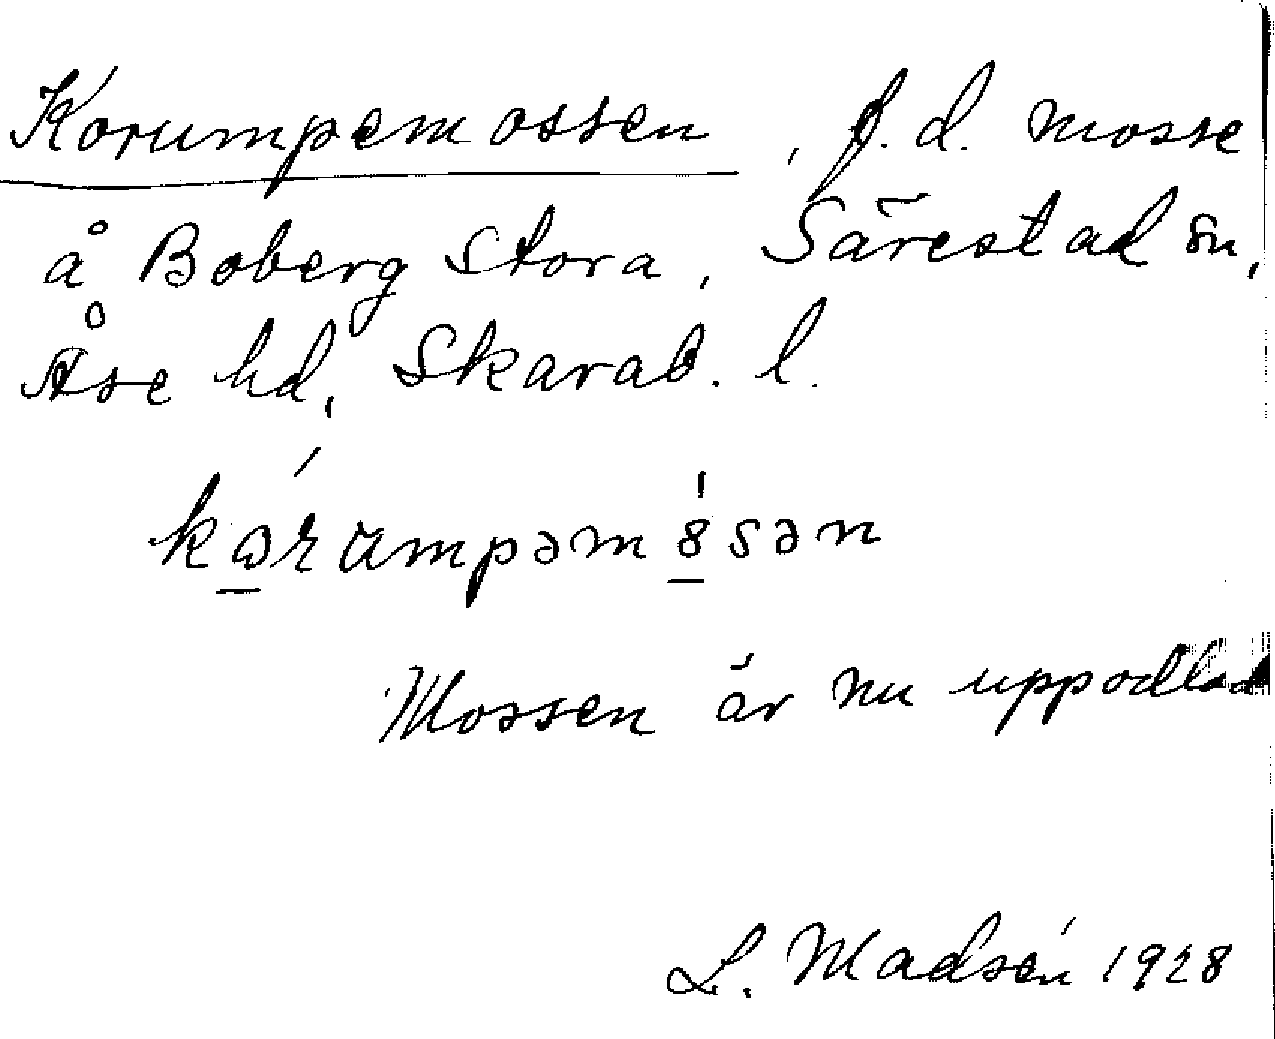 Korumpemossen, f.d. mosse
å Boberg Stora, Särestad sn,
Åse hd, Skarab. l.
Mossen är nu uppodlad
L. Madsén 1928